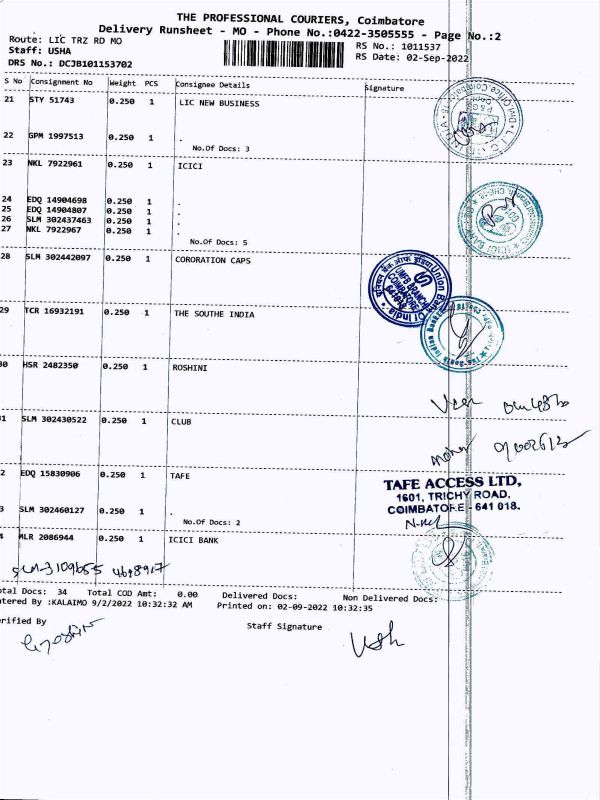 THE PROFESSIONAL COURIERS, Coimbatore
Delivery Runsheet - MO - Phone No.:0422-3505555 - Page No.:2
Route: LIC TRZ RD MO
Staff: USHA
DRS No.: DCJB101153702
RS No.: 1011537
RS Date: 02-Sep-2022
S No Consignment No Weight PCS Consignee Details Signature
21 STY 51743 0.250 1 LIC NEW BUSINESS
22 GPM 1997513 0.250 1 .
No.Of Docs: 3
23 NKL 7922961 0.250 1 ICICI
24 EDQ 14904698 0.250 1 .
25 EDQ 14904807 0.250 1 .
26 SLM 302437463 0.250 1 .
27 NKL 7922967 0.250 1 .
No.Of Docs: 5
28 SLM 302442097 0.250 1 CORORATION CAPS
Union Bank Of India
यूनियन बैंक ऑफ इंडिया
COIMBATORE
29 TCR 16932191 0.250 1 THE SOUTHE INDIA
The South Indian Bank
30 HSR 2482350 0.250 1 ROSHINI
1 SLM 302430522 0.250 1 CLUB
2 EDQ 15830906 0.250 1 TAFE
TAFE ACCESS LTD,
1601, TRICHY ROAD,
COIMBATORE - 641 018.
3 SLM 302460127 0.250 1 .
No.Of Docs: 2
4 MLR 2086944 0.250 1 ICICI BANK
otal Docs: 34 Total COD Amt: 0.00 Delivered Docs: Non Delivered Docs:
ntered By :KALAIMO 9/2/2022 10:32:32 AM Printed on: 02-09-2022 10:32:35
erified By
Staff Signature
Ush